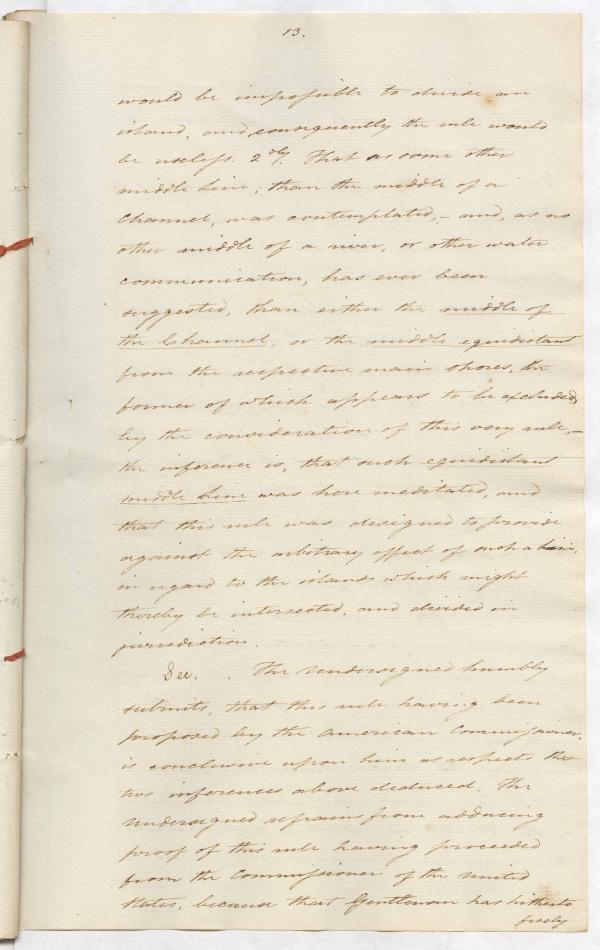 13.
would be impossible to divide an
island, and consequently the rule would
be useless. 2dly. That as some other
middle Line, than the middle of a
Channel, was contemplated, – and, as no
other middle of a river, or other water
communication, has ever been
suggested, than either the middle of
the Channel, or the middle equidistant
from the respective main shores, the
former of which appears to be excluded,
by the consideration of this very rule, –
the inference is, that such equidistant
middle Line was here meditated, and
that this rule was designed to provide
against the arbitrary effect of such a Line,
in regard to the islands which might
thereby be intersected, and divided in
jurisdiction.
Sec. . The Undersigned humbly
submits, that this rule having been
proposed by the American Commissioner,
is conclusive upon him as respects the
two inferences above deduced. The
Undersigned refrains from adducing
proof of this rule having proceeded
from the Commissioner of the United
States, because that Gentleman has hitherto
freely